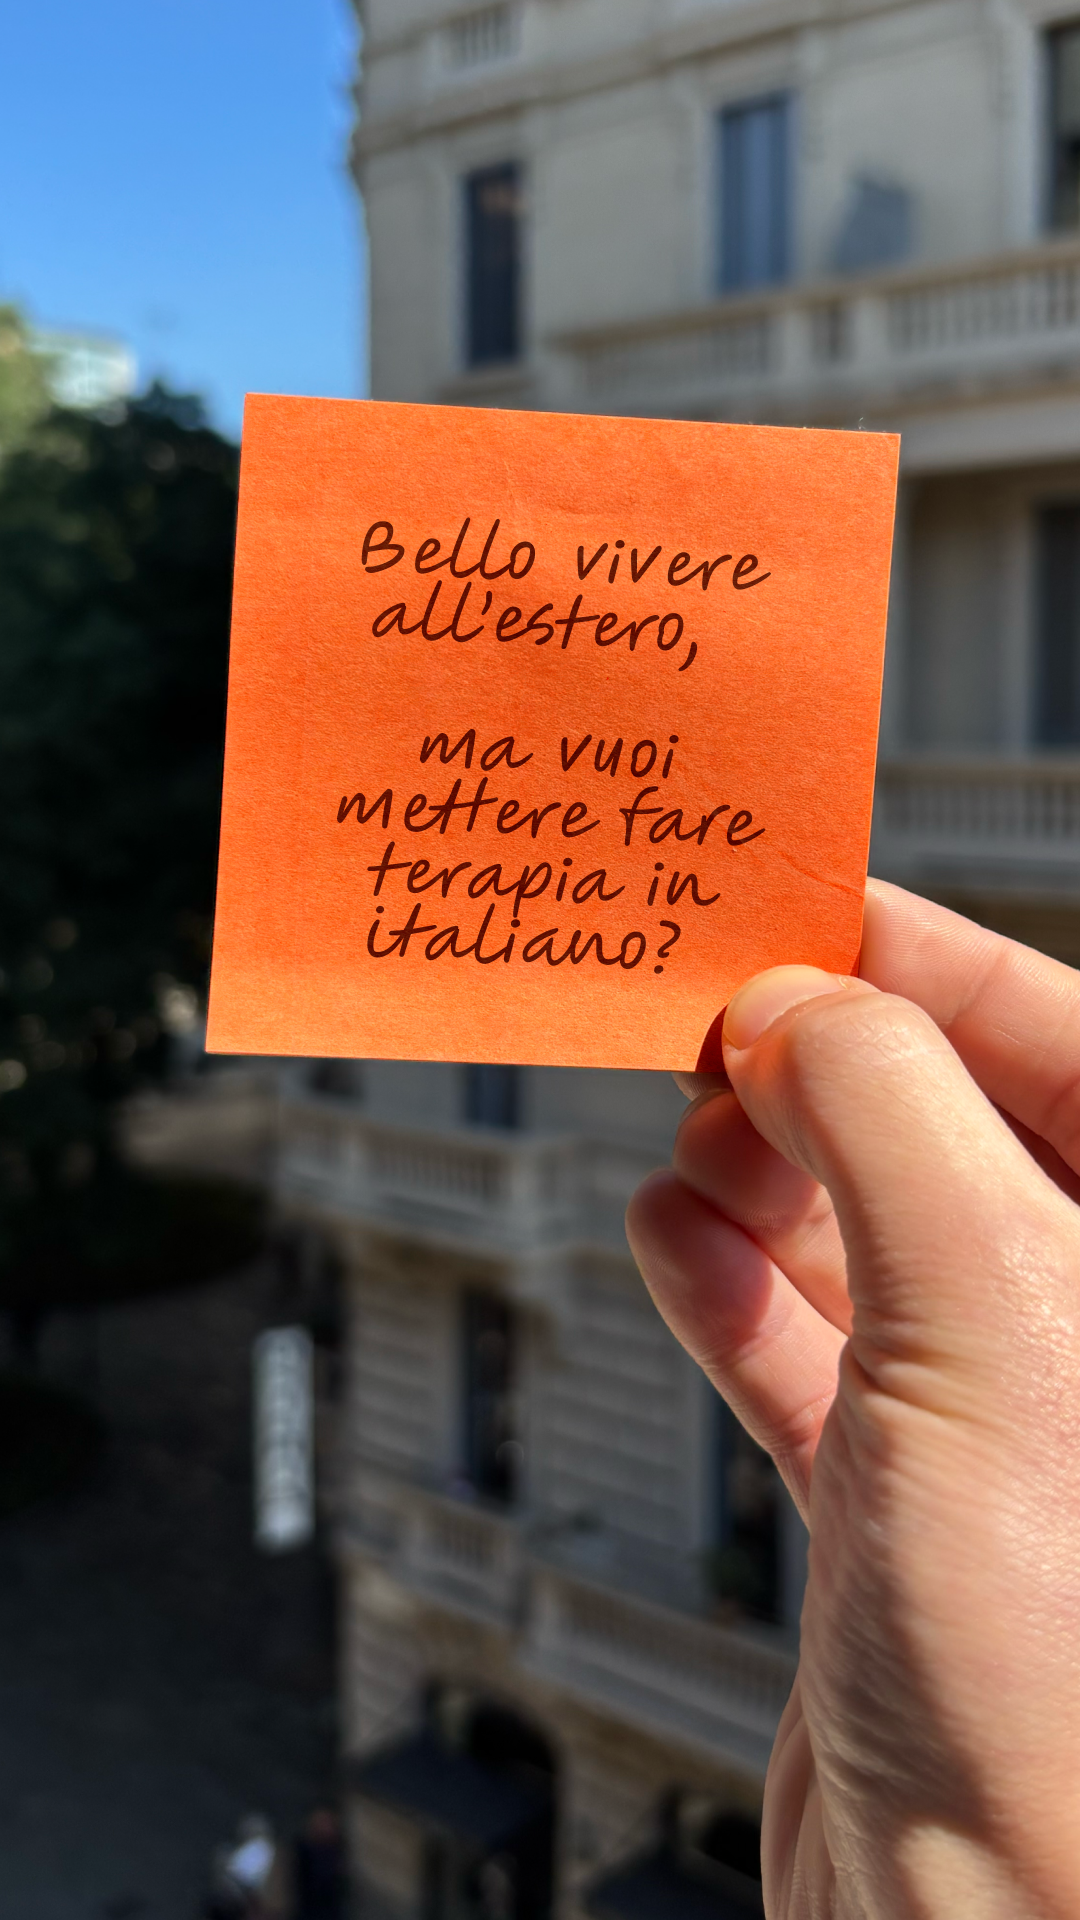 Bello vivere
all'estero,
ma vuoi
mettere fare
terapia in
italiano?